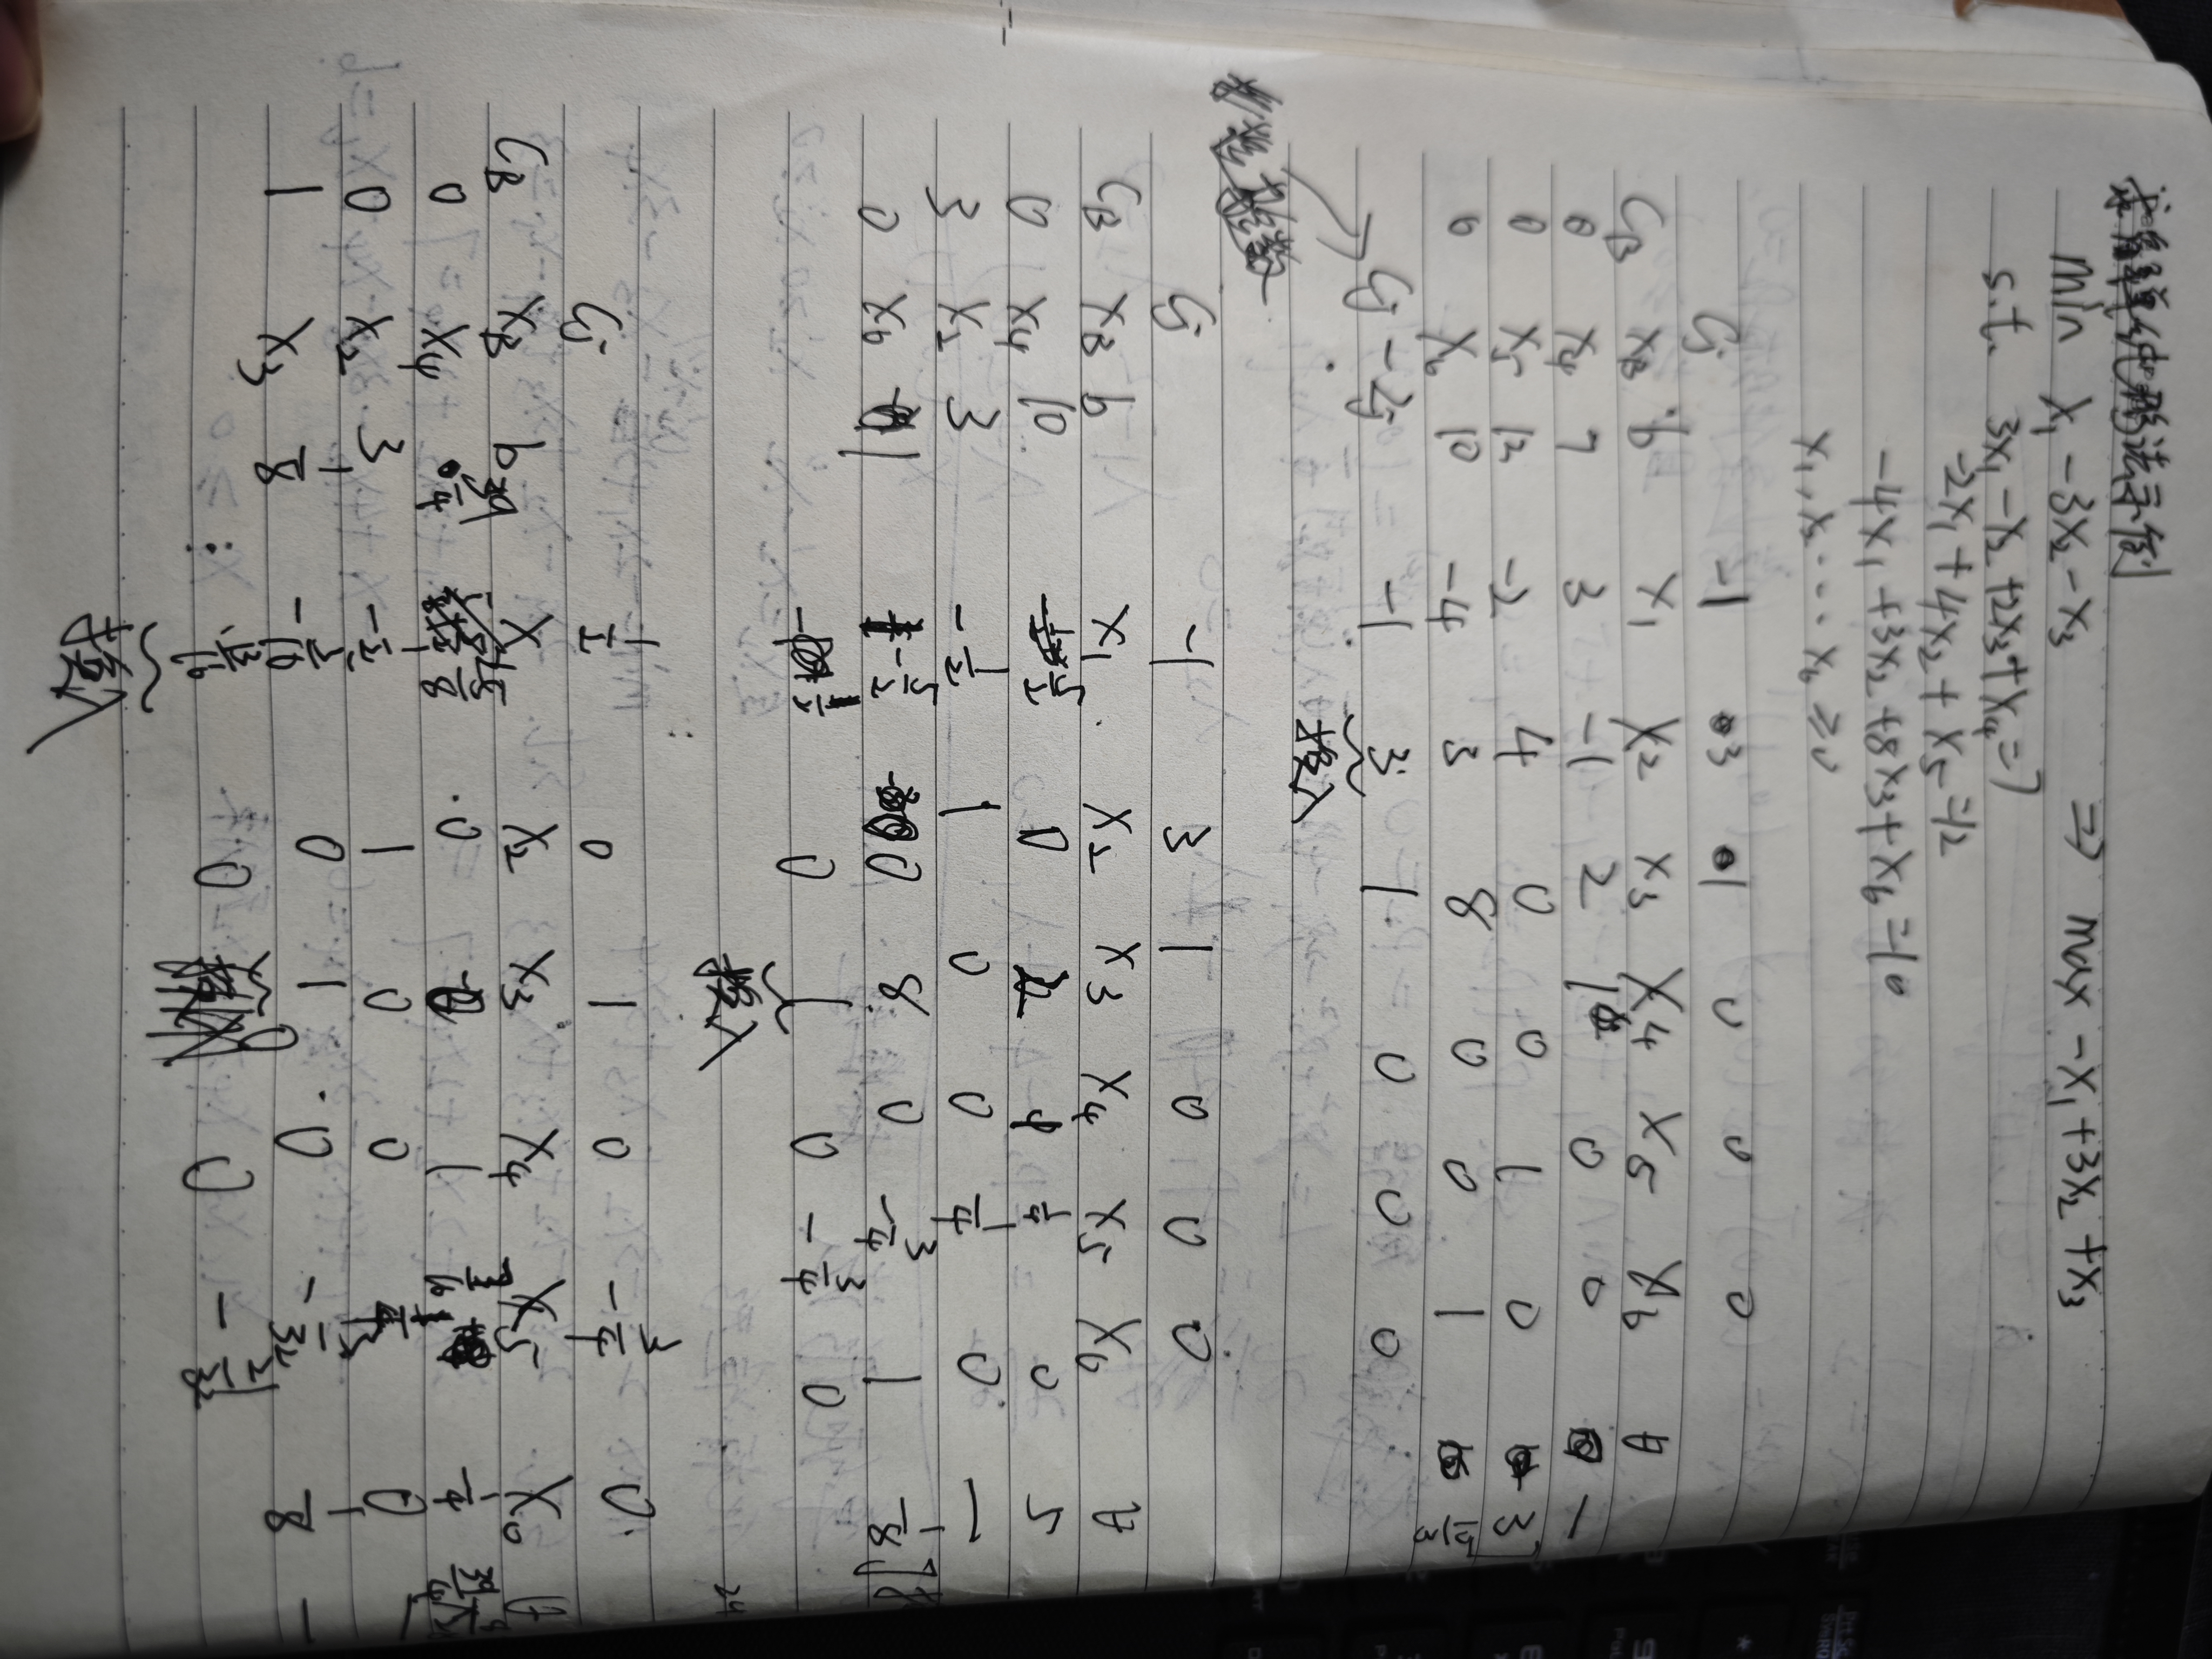 求解单纯形法示例
min x₁ - 3x₂ - x₃ ⇒ max -x₁ + 3x₂ + x₃
s.t. 3x₁ - x₂ + 2x₃ + x₄ = 7
-2x₁ + 4x₂ + x₅ = 12
-4x₁ + 3x₂ + 8x₃ + x₆ = 10
x₁, x₂ ... x₆ ≥ 0
Cj -1 3 1 0 0 0
CB XB b x₁ x₂ x₃ x₄ x₅ x₆ θ
0 x₄ 7 3 -1 2 1 0 0 -
0 x₅ 12 -2 4 0 0 1 0 3
0 x₆ 10 -4 3 8 0 0 1 10/3
Cj - Zj -1 3 1 0 0 0
换入
Cj -1 3 1 0 0 0
CB XB b x₁ x₂ x₃ x₄ x₅ x₆ θ
0 x₄ 10 5/2 0 2 1 1/4 0 5
3 x₂ 3 -1/2 1 0 0 1/4 0 -
0 x₆ 1 -5/2 0 8 0 -3/4 1 1/8
1/2 0 1 0 -3/4 0
换入
Cj 1/2 0 1 0 -3/4 0
CB XB b x₁ x₂ x₃ x₄ x₅ x₆ θ
0 x₄ 39/4 0 1 -1/4
0 x₂ 3 -1/2 1 0 0 1/4 0 -
1 x₃ 1/8 0 1 0 1/8 -
0 0 0
换入